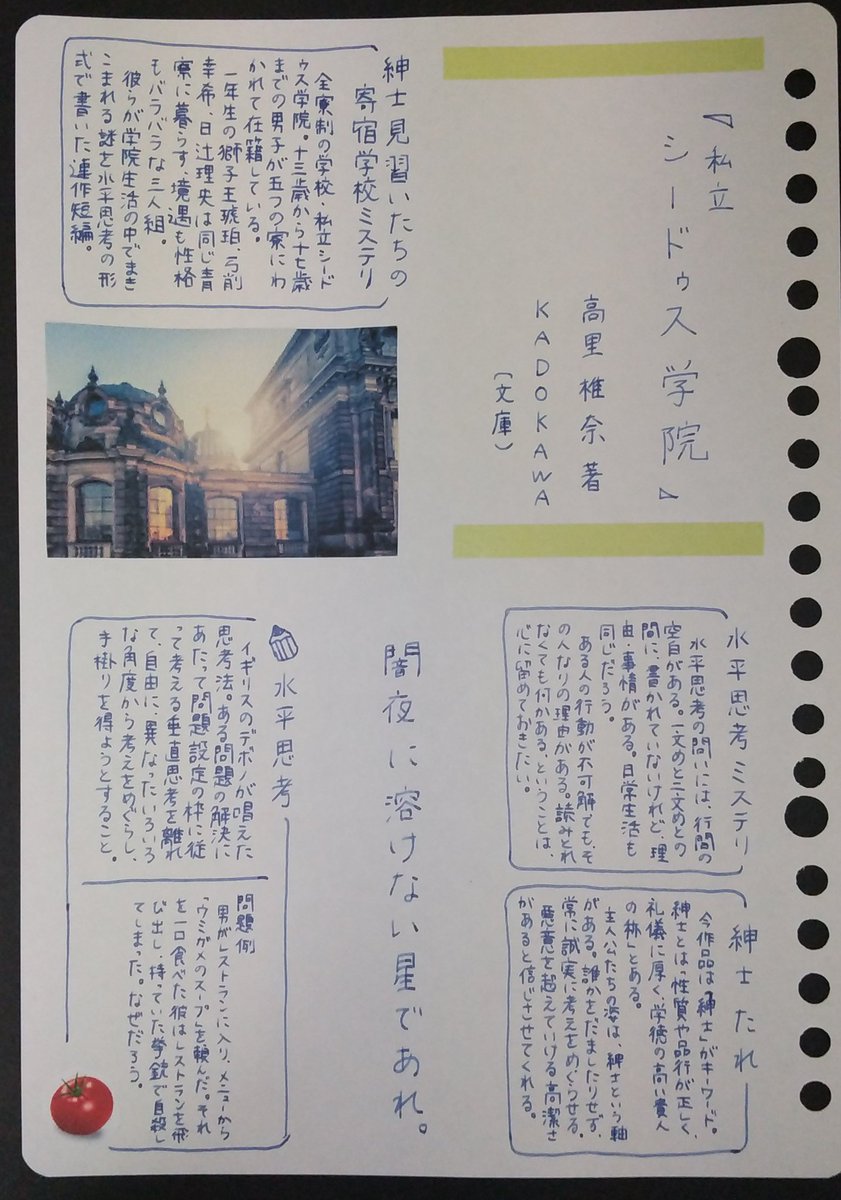 『私立
シードゥス学院』
高里椎奈 著
KADOKAWA
(文庫)
紳士見習いたちの
寄宿学校ミステリ
全寮制の学校・私立シード
ゥス学院。十三歳から十七歳
までの男子が五つの寮にわ
かれて在籍している。
一年生の獅子王琥珀、弓削
幸希、日辻理央は同じ青
寮に暮らす、境遇も性格
もバラバラな三人組。
彼らが学院生活の中でまき
こまれる謎を水平思考の形
式で書いた連作短編。
水平思考ミステリ
水平思考の問いには、行間の
空白がある。一文めと二文めとの
間に、書かれていないけれど、理
由・事情がある。日常生活も
同じだろう。
ある人の行動が不可解でも、そ
の人なりの理由がある。読みとれ
なくても何かある、ということは、
心に留めておきたい。
紳士たれ
今作品は「紳士」がキーワード。
紳士とは「性質や品行が正しく、
礼儀に厚く、学徳の高い貴人
の称」とある。
主人公たちの姿は、紳士という軸
がある。誰かをだましたりせず、
常に誠実に考えをめぐらせる。
悪意を超えていける高潔さ
があると信じさせてくれる。
闇夜に溶けない星であれ。
水平思考
イギリスのデボノが唱えた
思考法。ある問題の解決に
あたって問題設定の枠に従
って考える垂直思考を離れ
て、自由に、異なったいろいろ
な角度から考えをめぐらし、
手掛りを得ようとすること。
問題例
男がレストランに入り、メニューから
「ウミガメのスープ」を頼んだ。それ
を一口食べた彼はレストランを飛
び出し、持っていた拳銃で自殺し
てしまった。なぜだろう。